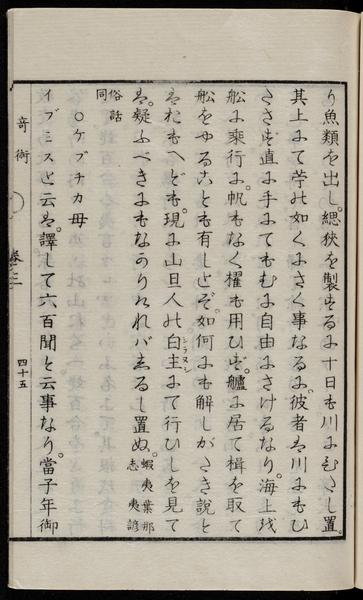 り魚類を出し。緦狹を製するに十日も川にひたし置。
其上にて苧の如くにさく事なるに。彼者は川にもひ
たさず。直に手にてもむに自由にさけるなり。海上を
舩に乘行に。帆もなく櫂も用ひず。艫に居て楫を取て
舩をやることも有しとぞ。如何にも解しがたき説と
はおもへども。現に山旦人の白主にて行ひしを見て
シラヌシ
は。疑ふべきにもなかりければ。えるし置ぬ。蝦夷葉那志夷諺
俗話同
○ケブチカ母
イブミスと云は。譯して六百聞と云事なり。當子年御
奇術
卷之二
四十五